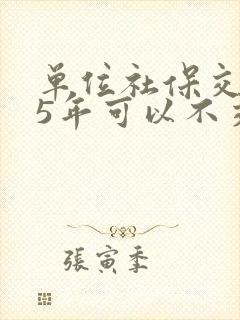 单位社保交
5年可以不
張寅季